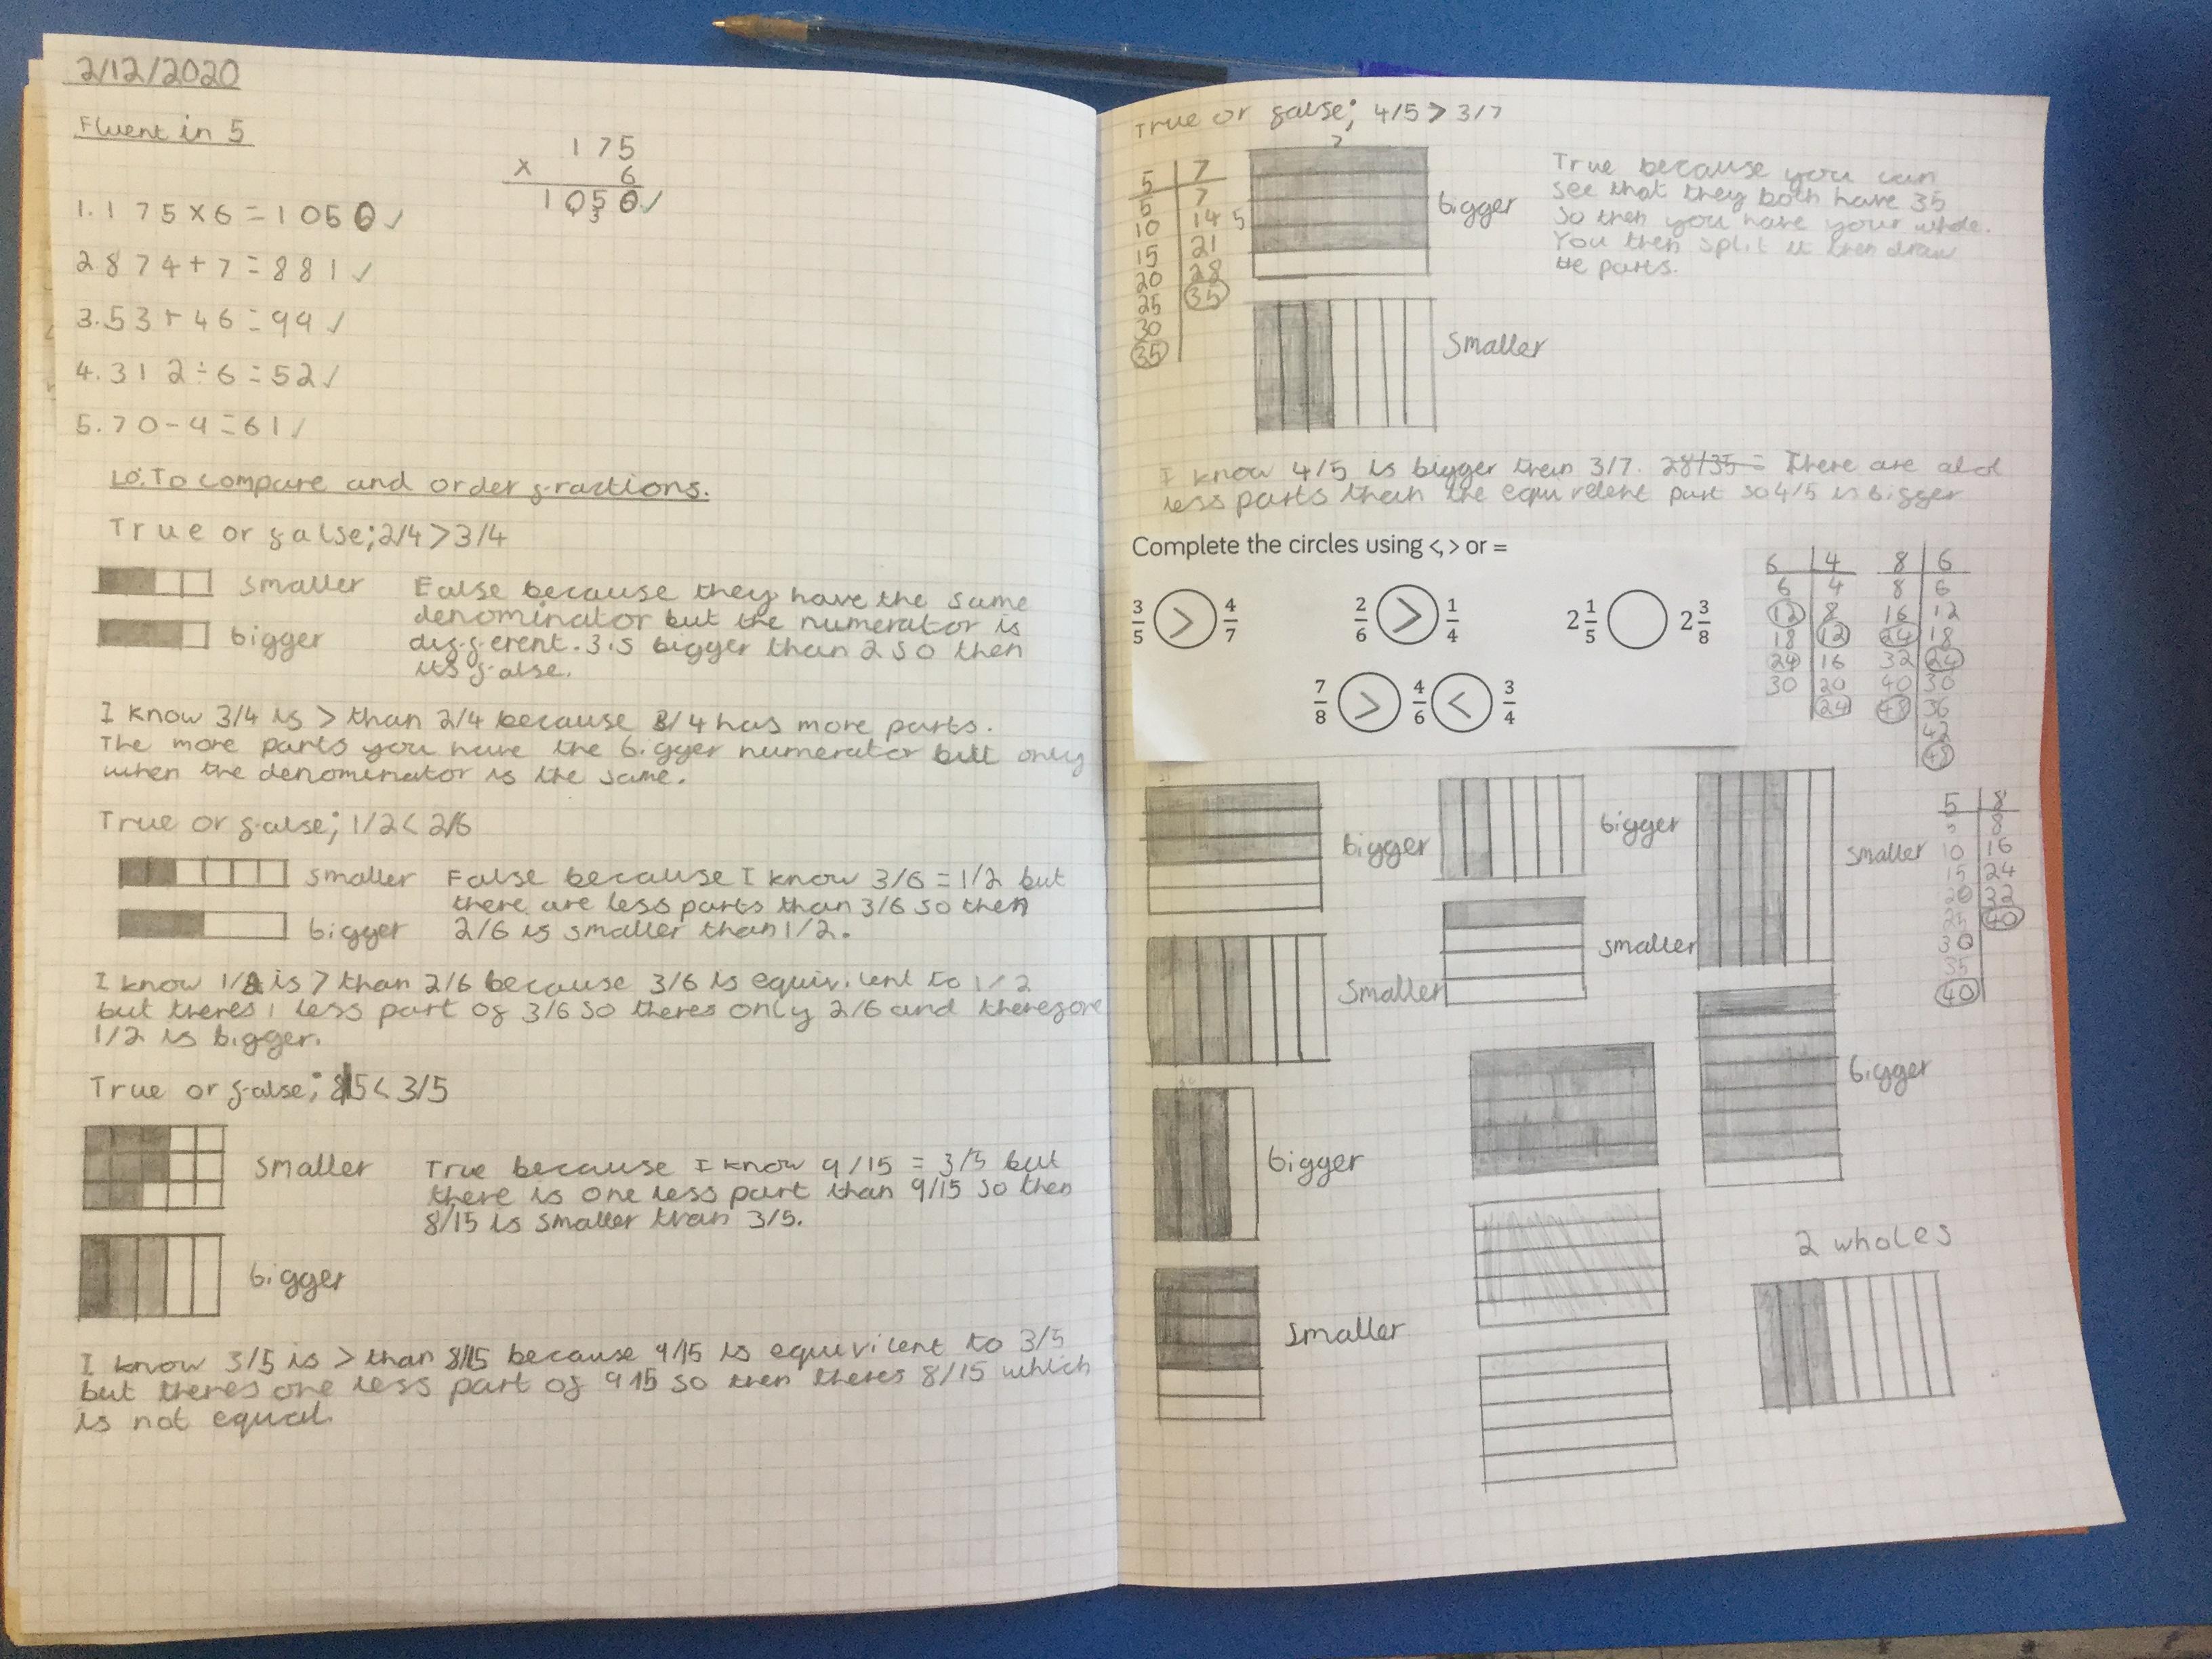 2/12/2020
Fluent in 5
175
x 6
1050 ✓
3
1. 175 x 6 = 1050 ✓
2 874 + 7 = 881 ✓
3. 53 + 46 = 99 ✓
4. 312 ÷ 6 = 52 ✓
5. 70 - 9 = 61 ✓
LO: To compare and order fractions.
True or false; 2/4 > 3/4
smaller
bigger
False because they have the same
denominator but the numerator is
different. 3 is bigger than 2 so then
its false.
I know 3/4 is > than 2/4 because 3/4 has more parts.
The more parts you have the bigger numerator but only
when the denominator is the same.
True or false; 1/2 < 2/6
smaller
bigger
False because I know 3/6 = 1/2 but
there are less parts than 3/6 so then
2/6 is smaller than 1/2.
I know 1/2 is > than 2/6 because 3/6 is equivilent to 1/2
but theres 1 less part of 3/6 so theres only 2/6 and therefore
1/2 is bigger.
True or false; 8/15 < 3/5
smaller
True because I know 9/15 = 3/5 but
there is one less part than 9/15 so then
8/15 is smaller than 3/5.
bigger
I know 3/5 is > than 8/15 because 9/15 is equivilent to 3/5
but theres one less part of 9 15 so then theres 8/15 which
is not equal.
True or false; 4/5 > 3/7
5 7
5 7
10 14
15 21
20 28
25 35
30
35
7
5
bigger
smaller
True because you can
see that they both have 35
so then you have your whole.
You then split it then draw
the parts.
I know 4/5 is bigger than 3/7. 28/35 = There are alot
less parts than the equivelent part so 4/5 is bigger
Complete the circles using <, > or =
3/5 > 4/7
2/6 > 1/4
2 1/5 2 3/8
7/8 > 4/6 < 3/4
6 4
6 4
12 8
18 12
24 16
30 20
24
8 6
8 6
16 12
24 18
32 24
40 30
48 36
42
48
bigger
smaller
bigger
smaller
bigger
smaller
smaller
bigger
5 8
5 8
10 16
15 24
20 32
25 40
30
35
40
2 wholes